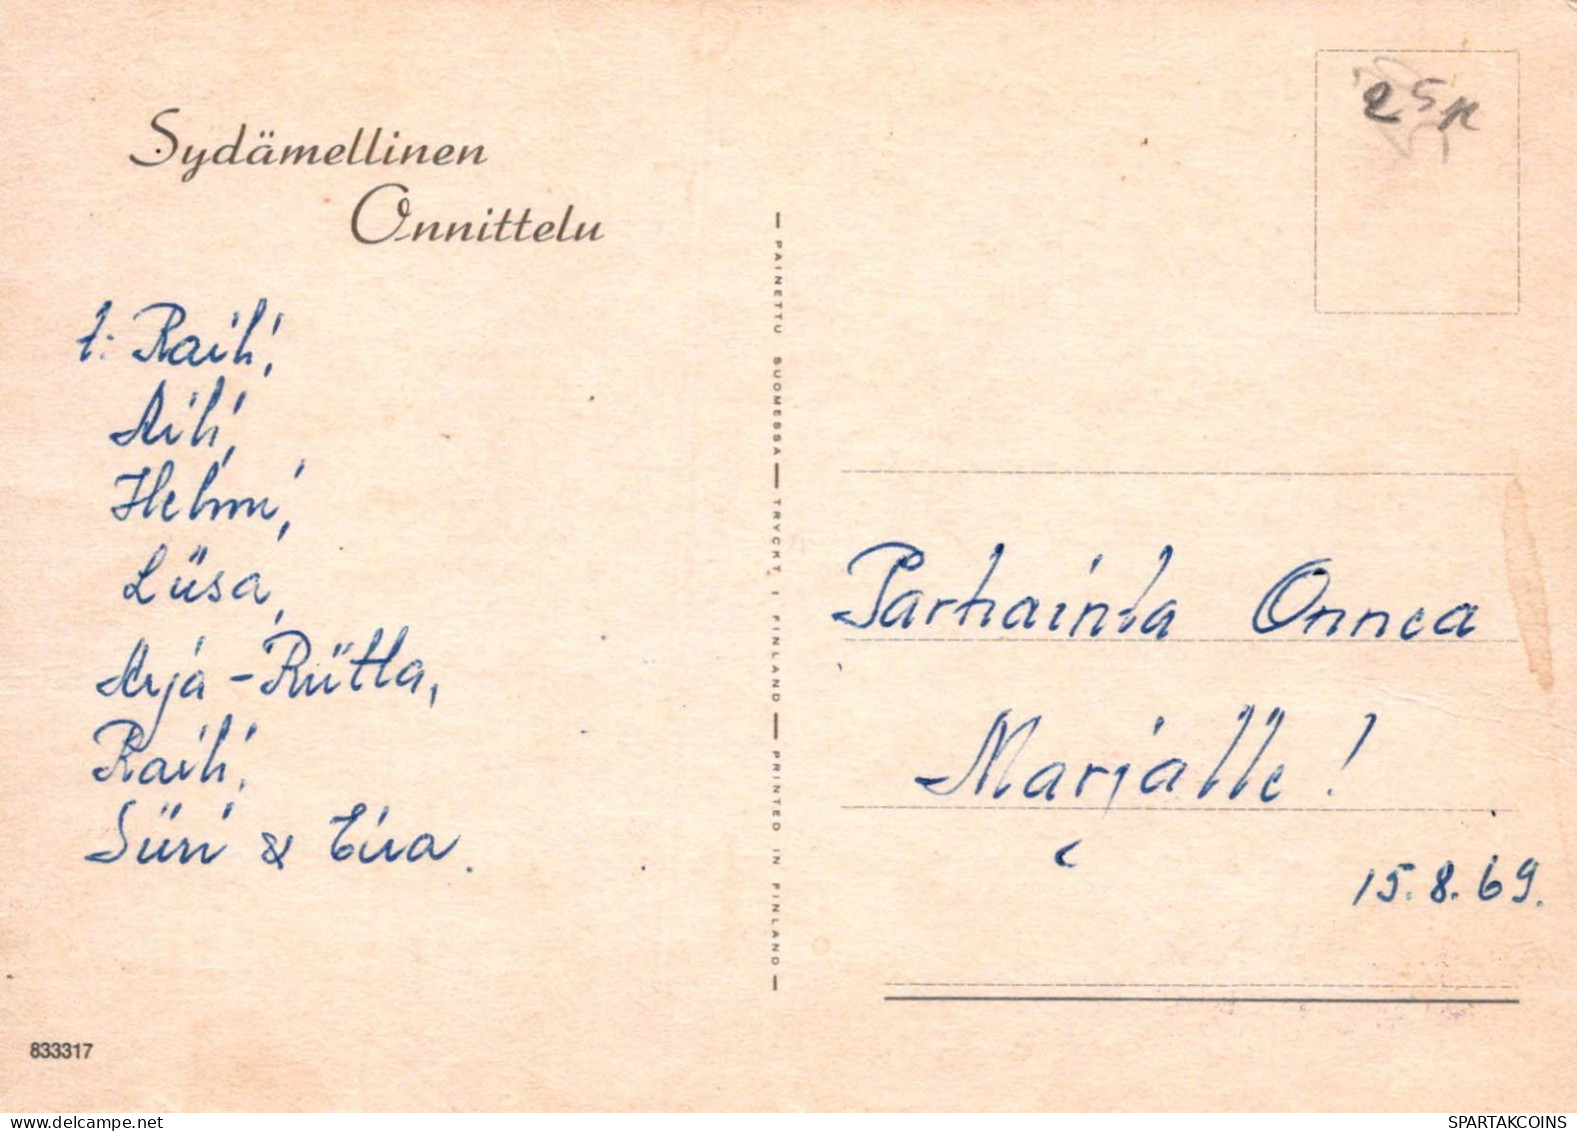 Sydämellinen
Onnittelu
t: Raili,
Aili,
Helmi,
Liisa,
Arja-Riitta,
Raili,
Siiri & Eira.
PAINETTU SUOMESSA — TRYCKT I FINLAND — PRINTED IN FINLAND
25k
Parhainta Onnea
Marjalle!
15.8.69.
833317
SPARTAKCOINS